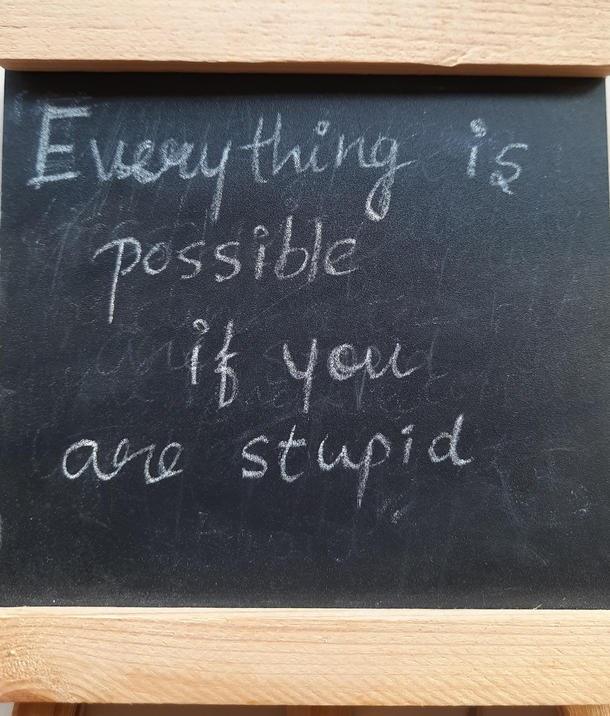 Everything is
possible
if you
are stupid